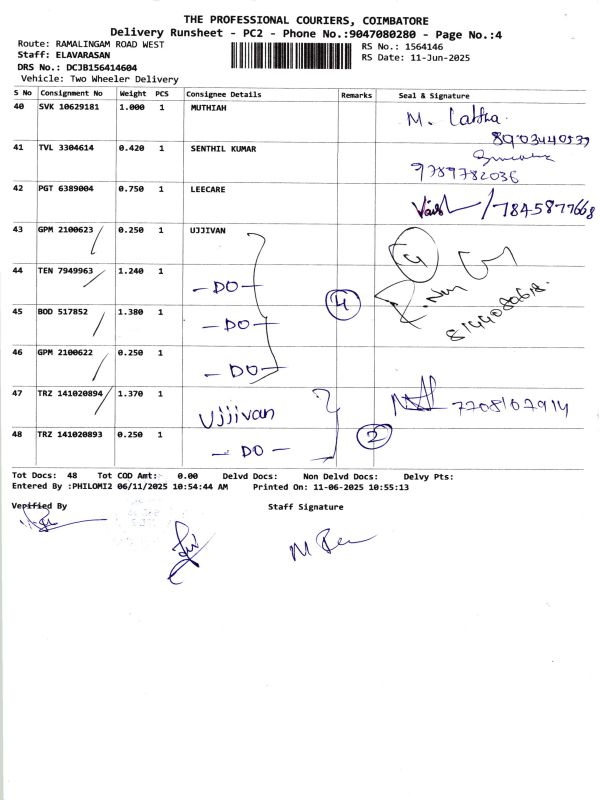 THE PROFESSIONAL COURIERS, COIMBATORE
Delivery Runsheet - PC2 - Phone No.:9047080280 - Page No.:4
Route: RAMALINGAM ROAD WEST
RS No.: 1564146
Staff: ELAVARASAN
RS Date: 11-Jun-2025
DRS No.: DCJB156414604
Vehicle: Two Wheeler Delivery
S No Consignment No Weight PCS Consignee Details Remarks Seal & Signature
40 SVK 10629181 1.000 1 MUTHIAH M. Laltha
8903440539
41 TVL 3304614 0.420 1 SENTHIL KUMAR
9789782036
42 PGT 6389004 0.750 1 LEECARE /7845877668
43 GPM 2100623 0.250 1 UJJIVAN 4
44 TEN 7949963 1.240 1 -DO- 4
45 BOD 517852 1.380 1 -DO-
46 GPM 2100622 0.250 1 -DO-
47 TRZ 141020894 1.370 1 Ujjivan 7708107914
48 TRZ 141020893 0.250 1 -DO- 2
Tot Docs: 48 Tot COD Amt: 0.00 Delvd Docs: Non Delvd Docs: Delvy Pts:
Entered By :PHILOMI2 06/11/2025 10:54:44 AM Printed On: 11-06-2025 10:55:13
Verified By Staff Signature